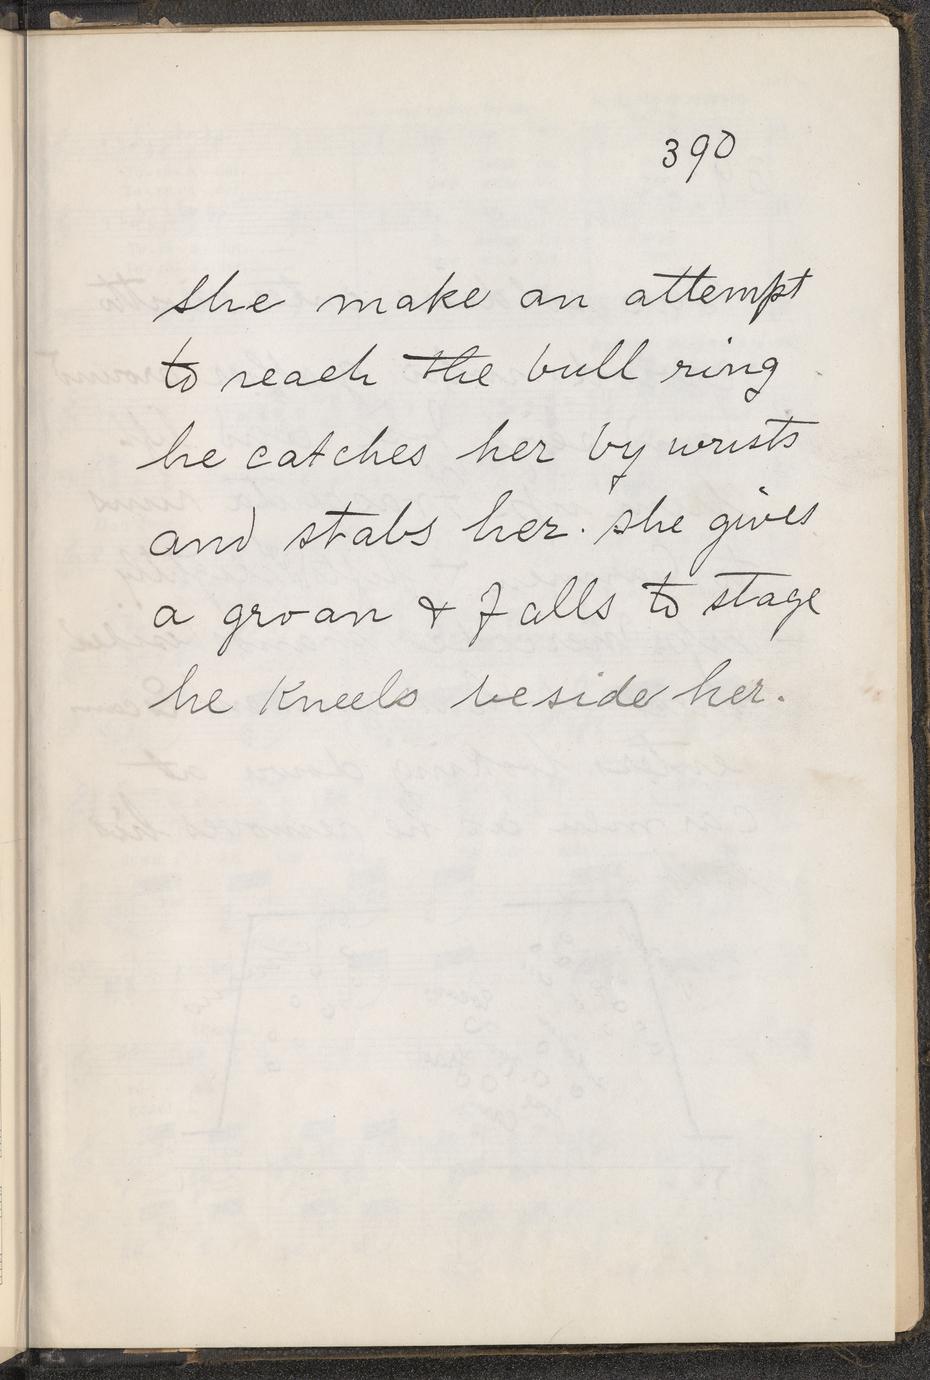 390
she make an attempt
to reach the bull ring
he catches her by wrists
and stabs her. she gives
a groan & falls to stage
he kneels beside her.